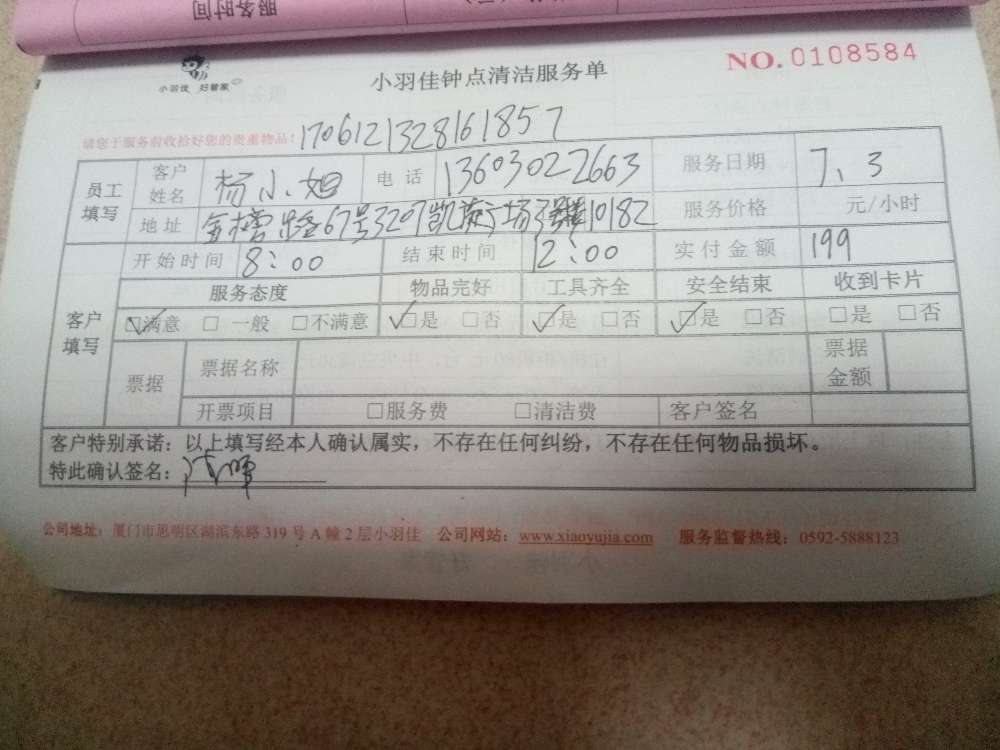 服务时间
小羽佳 好管家
小羽佳钟点清洁服务单
NO.0108584
请您于服务前收拾好您的贵重物品! 1706121328161857
员工填写 客户姓名 杨小姐 电话 13603022663 服务日期 7、3
地址 金榜路67号3207凯旋广场 10182 服务价格 元/小时
客户填写 开始时间 8:00 结束时间 12:00 实付金额 199
服务态度 物品完好 工具齐全 安全结束 收到卡片
☑满意 □一般 □不满意 ☑是 □否 ☑是 □否 ☑是 □否 □是 □否
票据 票据名称 票据金额
开票项目 □服务费 □清洁费 客户签名
客户特别承诺：以上填写经本人确认属实，不存在任何纠纷，不存在任何物品损坏。
特此确认签名：
公司地址：厦门市思明区湖滨东路 319 号 A 幢 2 层小羽佳 公司网站：www.xiaoyujia.com 服务监督热线：0592-5888123